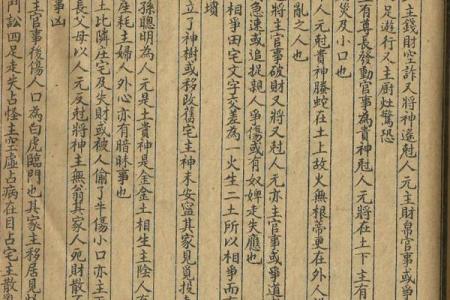 主錢財空詐又將神遙尅人元主財帛官事或爭
足遊行又主廚灶驚恐
有尊長發動官事為貴神尅人元將在土下主有
災及小口也
人元尅貴神螣蛇在土上故火無根蒂更在外人
亂之人也
將主官事破財又將又尅人元亦主官事爭道
急速或追捉親人爭傷或有奴婢走失應也
相爭田宅文字交差為一火生二土所以相爭而有
墳
立了神樹或移改舊宅主神未安寍其家見覓投
孫聰明為人元是土貴神是金金土相生主陰人
座耗主婦人外心亦有暗昧事也
土比隣座宅及失財或被人偷了牛傷小口亦主
長父母以人元反尅將神主無翁其家人死財散
事凶
主官事後傷人口為白虎臨門也其家主移居見
門訟四足走失占怪主空虛占病在目占宅主散